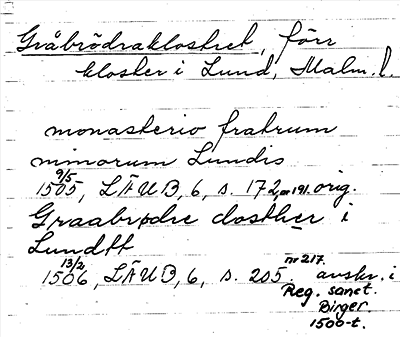 Gråbrödraklostret, förr
kloster i Lund, Malm. l.
monasterio fratrum
minorum Lundis
9/5 1505, LÄUB, 6, s. 172, nr 191. orig.
Graabrødre closther i
Lundtt
13/2 1506, LÄUB, 6, s. 205. nr 217. avskr. i
Reg. sanct.
Birger.
1500-t.